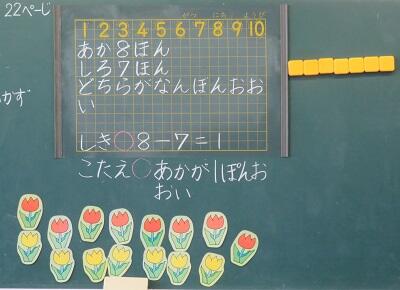 22ページ
がつ にち ようび
1 2 3 4 5 6 7 8 9 10
あか8ほん
しろ7ほん
どちらがなんぼんおお
い
かず
しき 8-7=1
こたえ あかが1ぽんお
おい